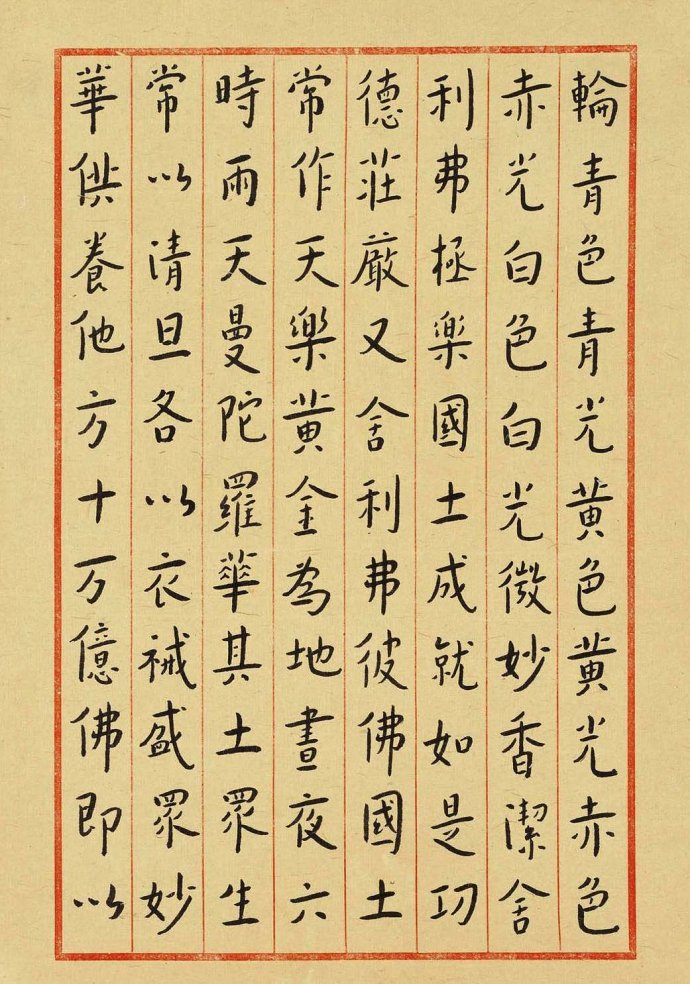 輪青色青光黃色黃光赤色
赤光白色白光微妙香潔舍
利弗極樂國土成就如是功
德莊嚴又舍利弗彼佛國土
常作天樂黃金為地晝夜六
時雨天曼陀羅華其土眾生
常以清旦各以衣裓盛眾妙
華供養他方十万億佛即以